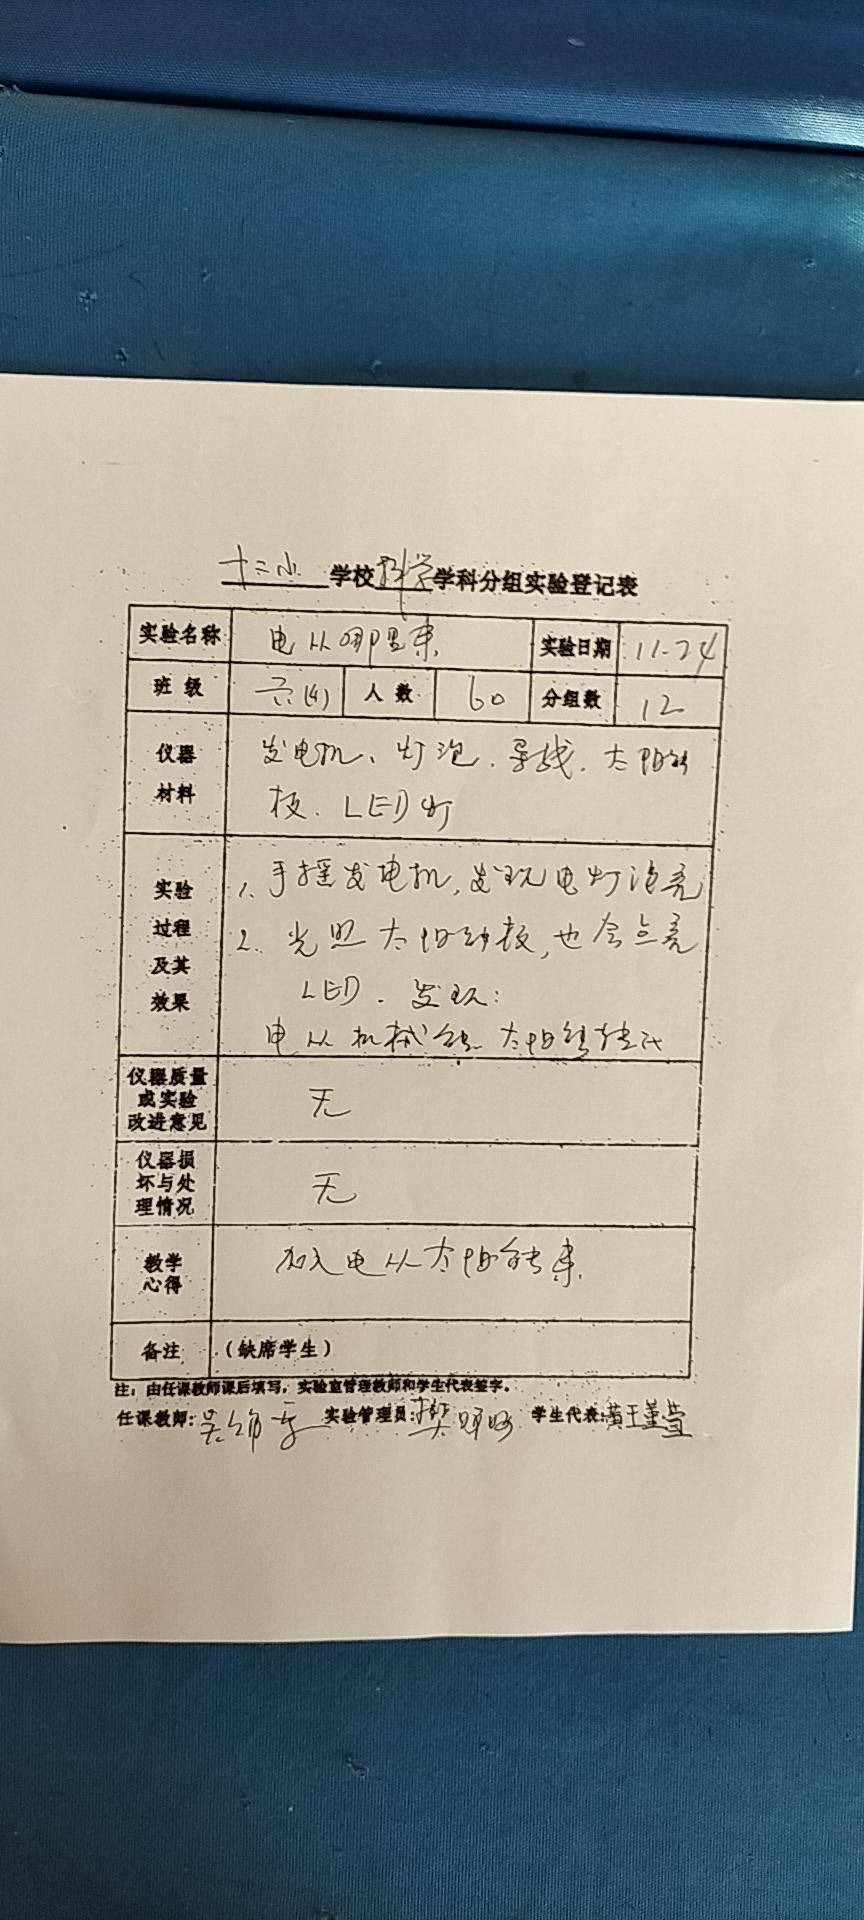 十二小学校科学学科分组实验登记表
实验名称 电从哪里来 实验日期 11.24
班级 六(4) 人数 60 分组数 12
仪器材料 发电机、灯泡.导线.太阳能
板.LED灯
实验过程及其效果 1.手摇发电机,发现电灯泡亮
2.光照太阳能板,也会点亮
LED.发现:
电从机械能 太阳能转
仪器质量或实验改进意见 无
仪器损坏与处理情况 无
教学心得 加入电从太阳能来.
备注 (缺席学生)
注:由任课教师课后填写,实验室管理教师和学生代表签字。
任课教师:吴 实验管理员:樊 学生代表:黄王董萱